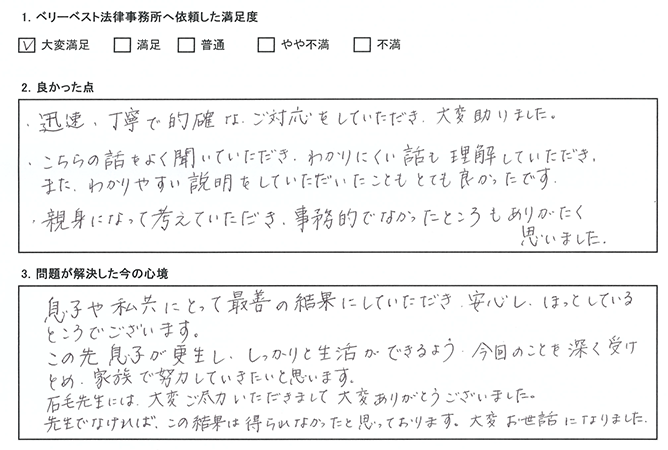 1. ベリーベスト法律事務所へ依頼した満足度
☑ 大変満足 □ 満足 □ 普通 □ やや不満 □ 不満
2. 良かった点
・迅速、丁寧で的確な、ご対応をしていただき、大変助りました。
・こちらの話をよく聞いていただき、わかりにくい話も理解していただき、
また、わかりやすい説明をしていただいたこともとても良かったです。
・親身になって考えていただき、事務的でなかったところもありがたく
思いました。
3. 問題が解決した今の心境
息子や私共にとって最善の結果にしていただき、安心し、ほっとしている
ところでございます。
この先息子が更生し、しっかりと生活ができるよう、今回のことを深く受け
とめ、家族で努力していきたいと思います。
石毛先生には、大変ご尽力いただきまして大変ありがとうございました。
先生でなければ、この結果は得られなかったと思っております。大変お世話になりました。